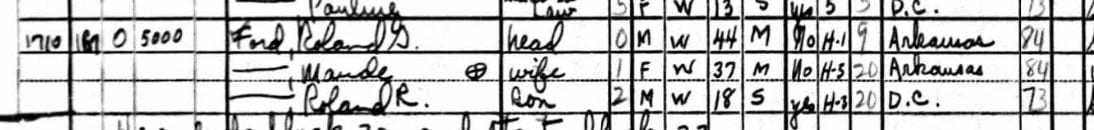 Pauline Law 5 F W 13 S yes 5 5 D.C. 73
1710 187 O 5000 Ford, Roland G. head 0 M W 44 M No H-1 9 Arkansas 84
—, Maude ⊕ wife 1 F W 37 M No H-3 20 Arkansas 84
—, Roland R. Son 2 M W 18 S yes H-3 20 D.C. 73